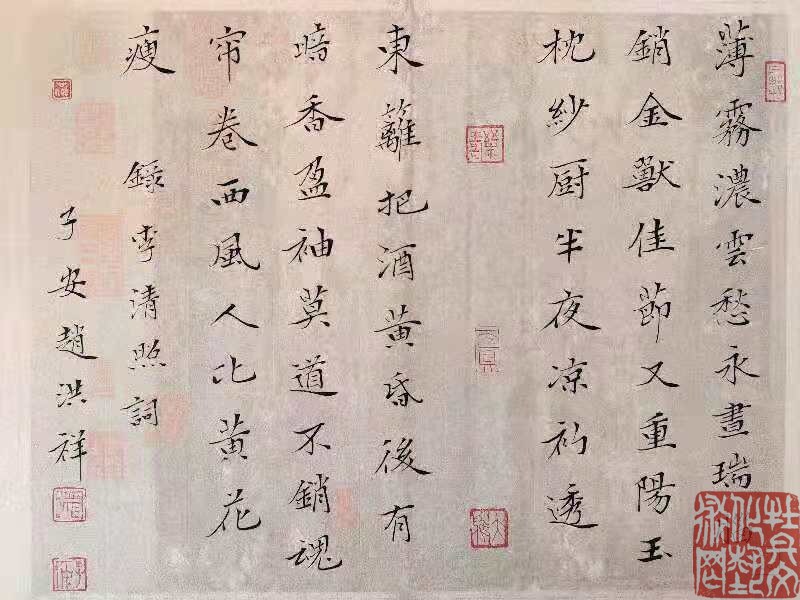 薄霧濃雲愁永晝瑞
銷金獸佳節又重陽玉
枕紗厨半夜凉初透
東籬把酒黄昏後有
暗香盈袖莫道不銷魂
帘卷西風人比黄花
瘦
錄李清照詞
子安趙洪祥